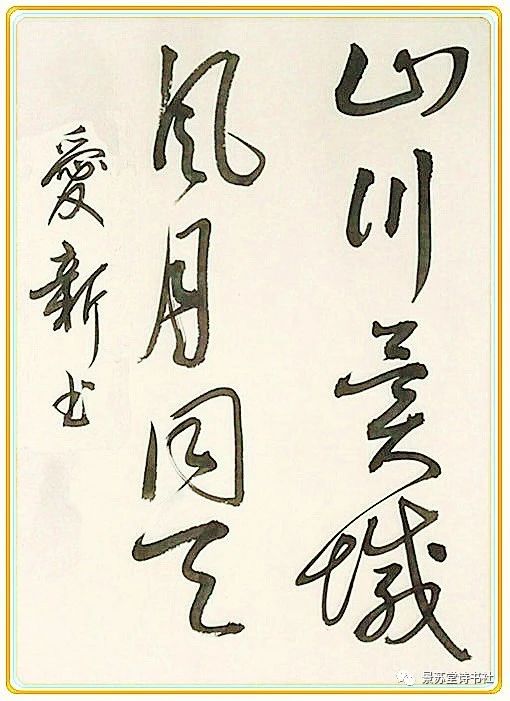 山川異域
風月同天
愛新书
景苏堂诗书社